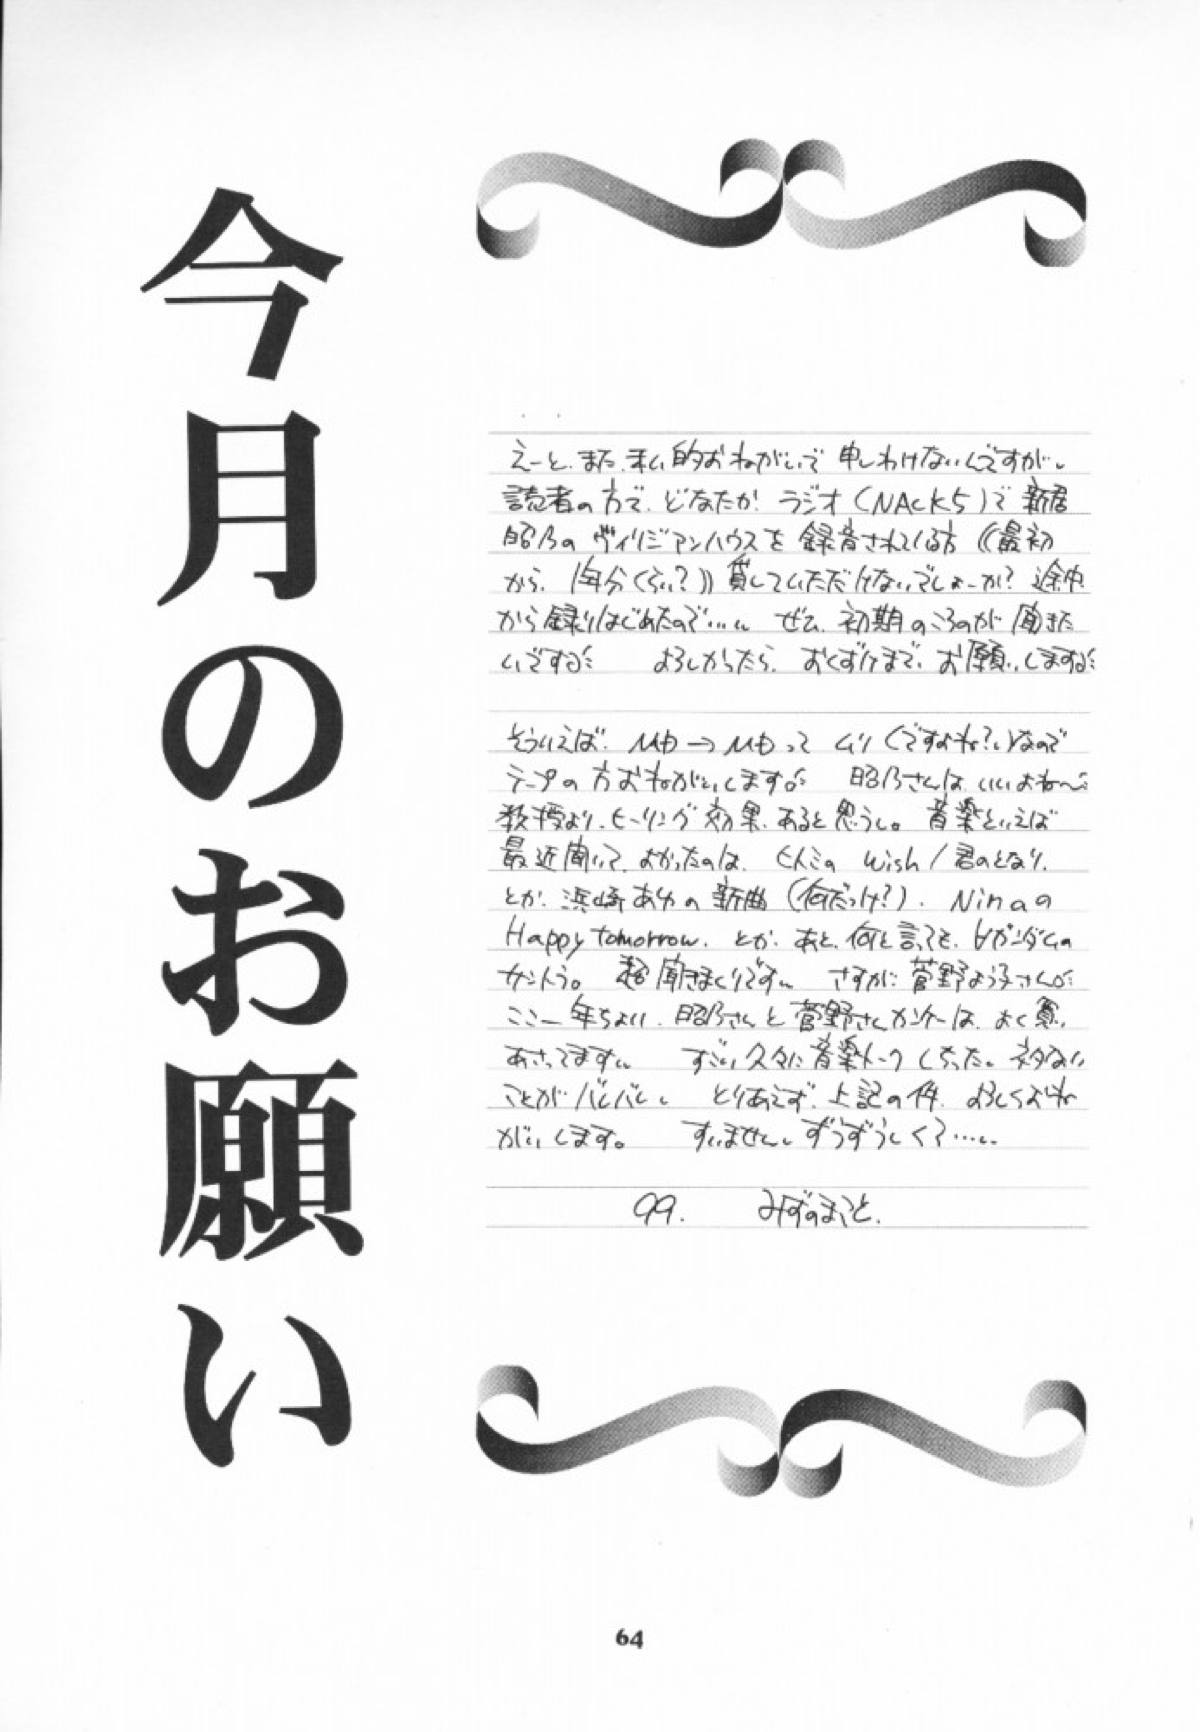 今月のお願い
えーと、また、私的おねがいで 申しわけないんですが、
読者の方で、どなたか、ラジオ(NACK5)で 新居
昭乃の ヴィリジアンハウスを 録音されている方((最初
から、1年分くらい?))貸していただけないでしょーか? 途中
から録りはじめたので…… ぜひ、初期のころのが 聞きた
いです よろしかったら、おくずけまで、お願いします
そういえば、 MD→MDって ムリ(ですよね?)なので
テープの方おねがいします 昭乃さんは、いいよね〜
教授より、ヒーリング効果、あると思うし。 音楽といえば
最近聞いて、よかったのは、ヒトミの wish/君のとなり、
とか、浜崎あゆの 新曲(何だっけ?)、Ninaの
Happy tomorrow、とか、あと、何と言っても、∀ガンダムの
サントラ。 超 聞きまくりです。 さすが 菅野よう子さん
ここ一年ちょい、昭乃さんと菅野さんカンケーは、よく買い
あさってます。 すごい久々に音楽トークしちった。ネタない
ことがバレバレ。 とりあえず、上記の件、よろしくおね
がいします。 すいません。ずうずうしくて……
99. みずのまこと.
64